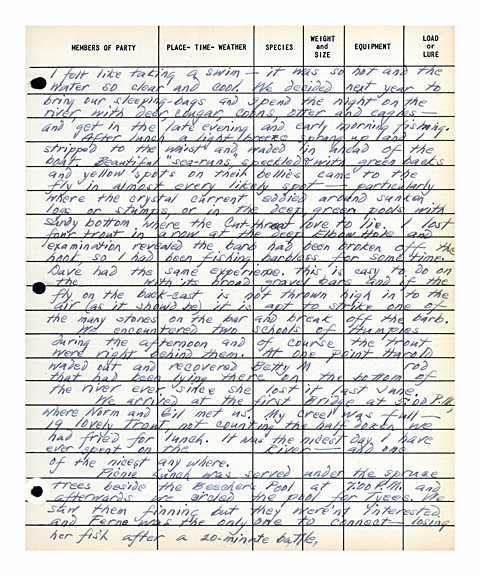 MEMBERS OF PARTY PLACE- TIME- WEATHER SPECIES WEIGHT and SIZE EQUIPMENT LOAD or LURE
I felt like taking a swim — it was so hot and the
water so clear and cool. We decided next year to
bring our sleeping-bags and spend the night on the
river with deer, cougar, coons, otter and eagles —
and get in the late evening and early morning fishing.
After lunch a light breeze sprang up and I
stripped to the waist and waded in ahead of the
boat. Beautiful "sea-runs" speckled with green backs
and yellow spots on their bellies came to the
fly in almost every likely spot — particularly
where the crystal current eddied around sunken
logs or stumps, or in the deep green pools with
sandy bottom where the Cut-throat love to lie. I lost
four trout in a row at the deep Elbow Hole and
examination revealed the barb had been broken off the
hook, so I had been fishing barbless for some time.
Dave had the same experience. This is easy to do on
the with its broad gravel bars and if the
fly on the back-cast is not thrown high in to the
air (as it should be) it is apt to strike one of
the many stones on the bar and break off the barb.
We encountered two schools of Humpies
during the afternoon and of course the trout
were right behind them. At one point Harold
waded out and recovered Betty M rod
that had been lying there on the bottom of
the river ever since she lost it last June.
We arrived at the first Bridge at 5:00 P.M.,
where Norm and Gil met us. My creel was full —
19 lovely Trout, not counting the half dozen we
had fried for lunch. It was the nicest day I have
ever spent on the River — and one
of the nicest any where.
Picnic Lunch was served under the spruce
trees beside the Beecher's Pool at 7:00 P.M. and
afterwards we circled the pool for Tyees. We
saw them finning but they weren't interested
and Ferne was the only one to connect — losing
her fish after a 20-minute battle,